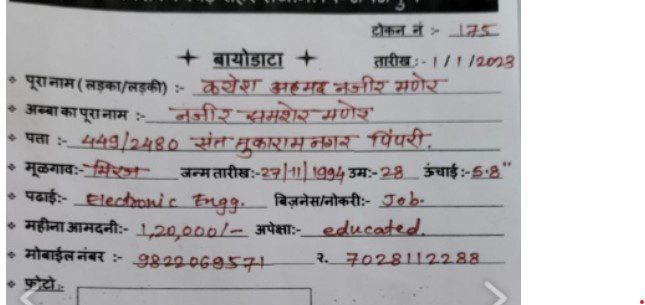 टोकन नं :- 175
बायोडाटा तारीख :- 1/1/2023
पूरा नाम (लड़का/लड़की) :- अहमद नजीर मणेर
अब्बा का पूरा नाम :- नजीर समशेर मणेर
पता :- 449/2480 संत तुकाराम नगर पिंपरी.
मूळगाव:- मिरज जन्म तारीख:- 27/11/1994 उम्र:- 28 ऊंचाई:- 5.8"
पढाई:- Electronic Engg. बिज़नेस/नोकरी:- Job.
महीना आमदनी:- 1,20,000/- अपेक्षा:- educated.
मोबाईल नंबर :- 9822069571 २. 7028112288
फ़ोटो:-